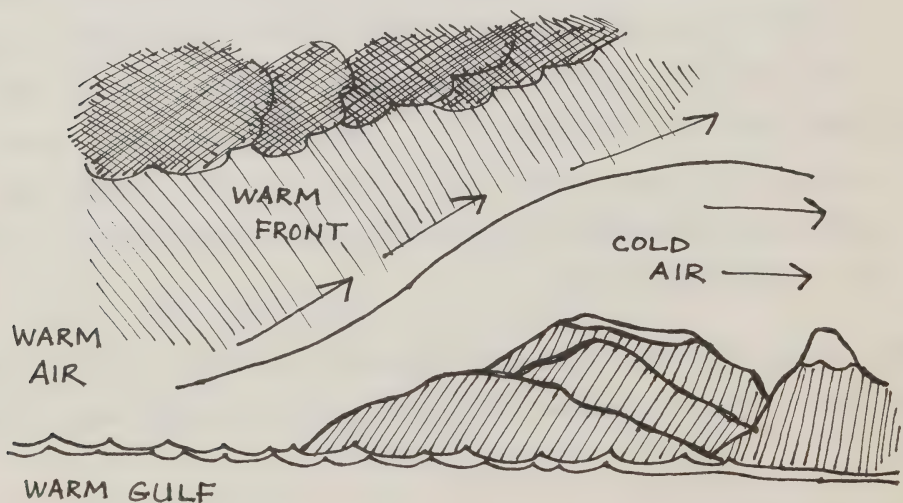 WARM
FRONT
COLD
AIR
WARM
AIR
WARM GULF